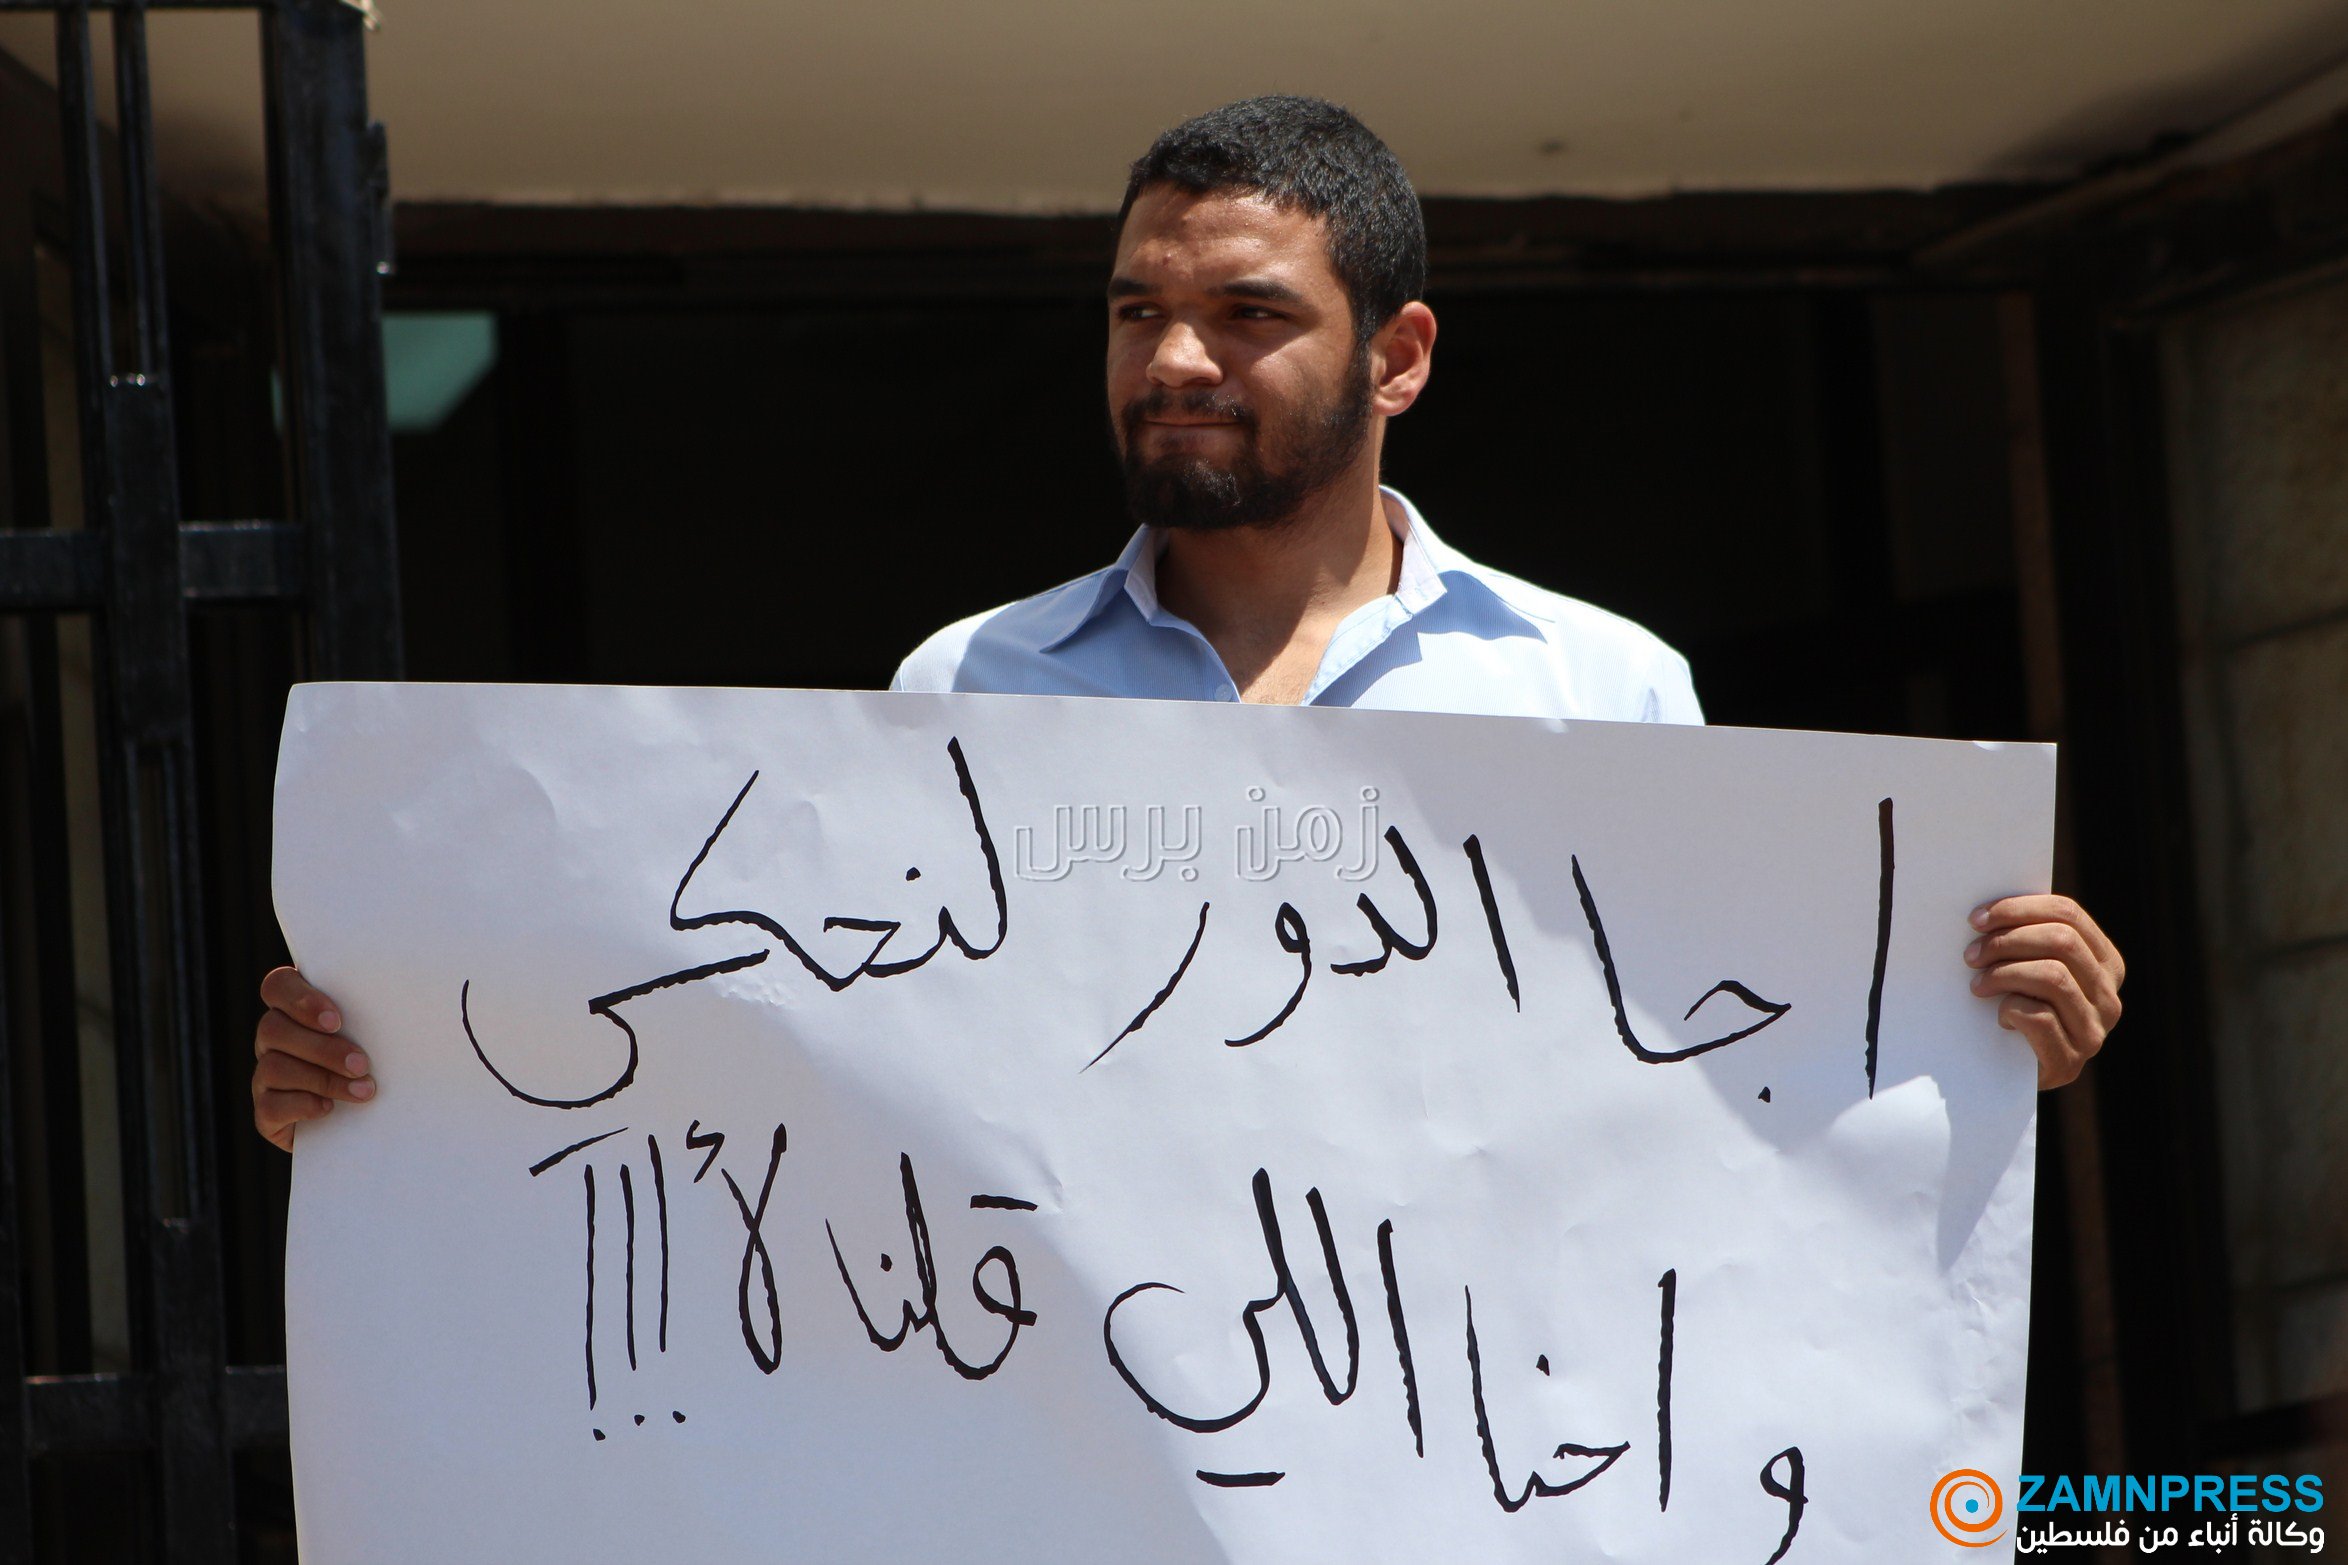 زمن برس
اجا الدور لنحكي
واحنا اللي قلنا لأ!!!
ZAMNPRESS
وكالة أنباء من فلسطين